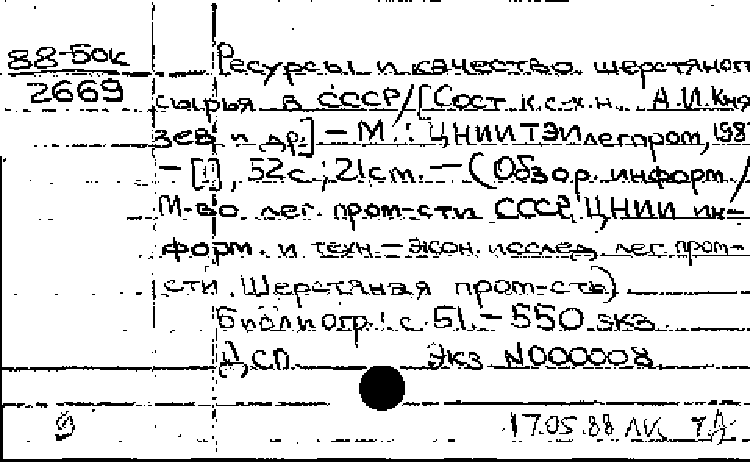 88-50к
2669
Ресурсы и качество шерстяног
сырья в СССР/[Сост. к.с-х.н. А.И.Кня
зев и др.] - М.: ЦНИИТЭИлегпром, 198
- [1], 52с.; 21см. - (Обзор. информ./
М-во лег. пром-сти СССР, ЦНИИ ин-
форм. и техн.-экон. исслед. лег. пром-
сти. Шерстяная пром-сть)
Библиогр.: с. 51. - 550 экз.
ДСП Экз. N000008
9 17.05.88